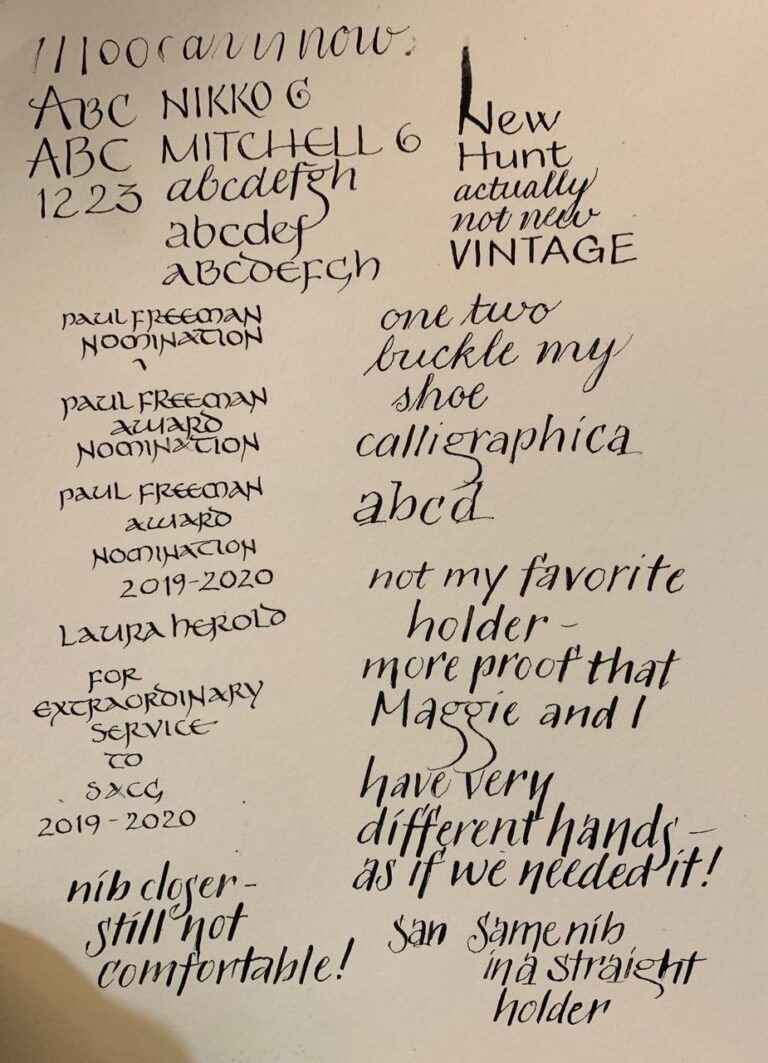 111000can now.
ABC NIKKO G
ABC MITCHELL 6
1223 abcdefgh
abcdef
ABCDEFGh
New
Hunt
actually
not new
VINTAGE
PAUL FREEMAN
NOMINATION
PAUL FREEMAN
AWARD
NOMINATION
PAUL FREEMAN
AWARD
NOMINATION
2019-2020
LAURA HEROLD
FOR
EXTRAORDINARY
SERVICE
TO
SACG
2019-2020
nib closer-
still not
comfortable!
one two
buckle my
shoe
calligraphica
abcd
not my favorite
holder-
more proof that
Maggie and I
have very
different hands-
as if we needed it!
San Same nib
in a straight
holder